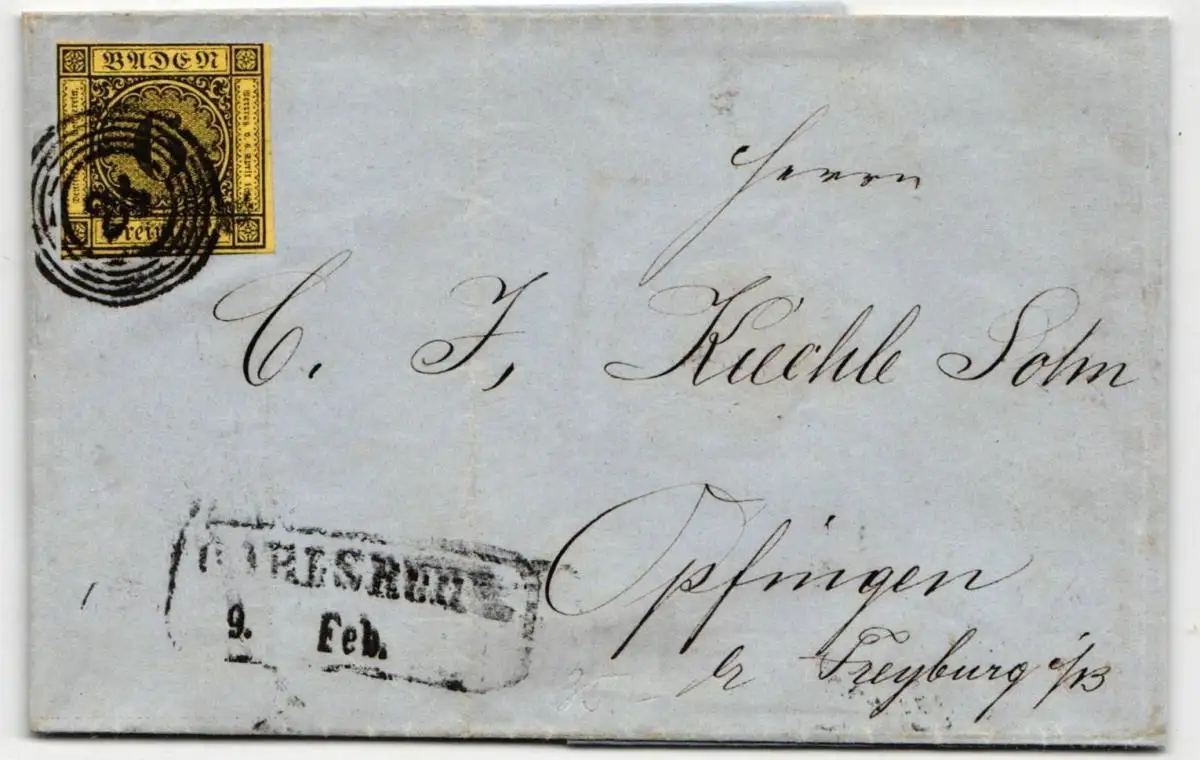 BADEN
Herrn
C. F. Küchle Sohn
Opfingen
Freyburg i/B
CARLSRUHE
9. Feb.